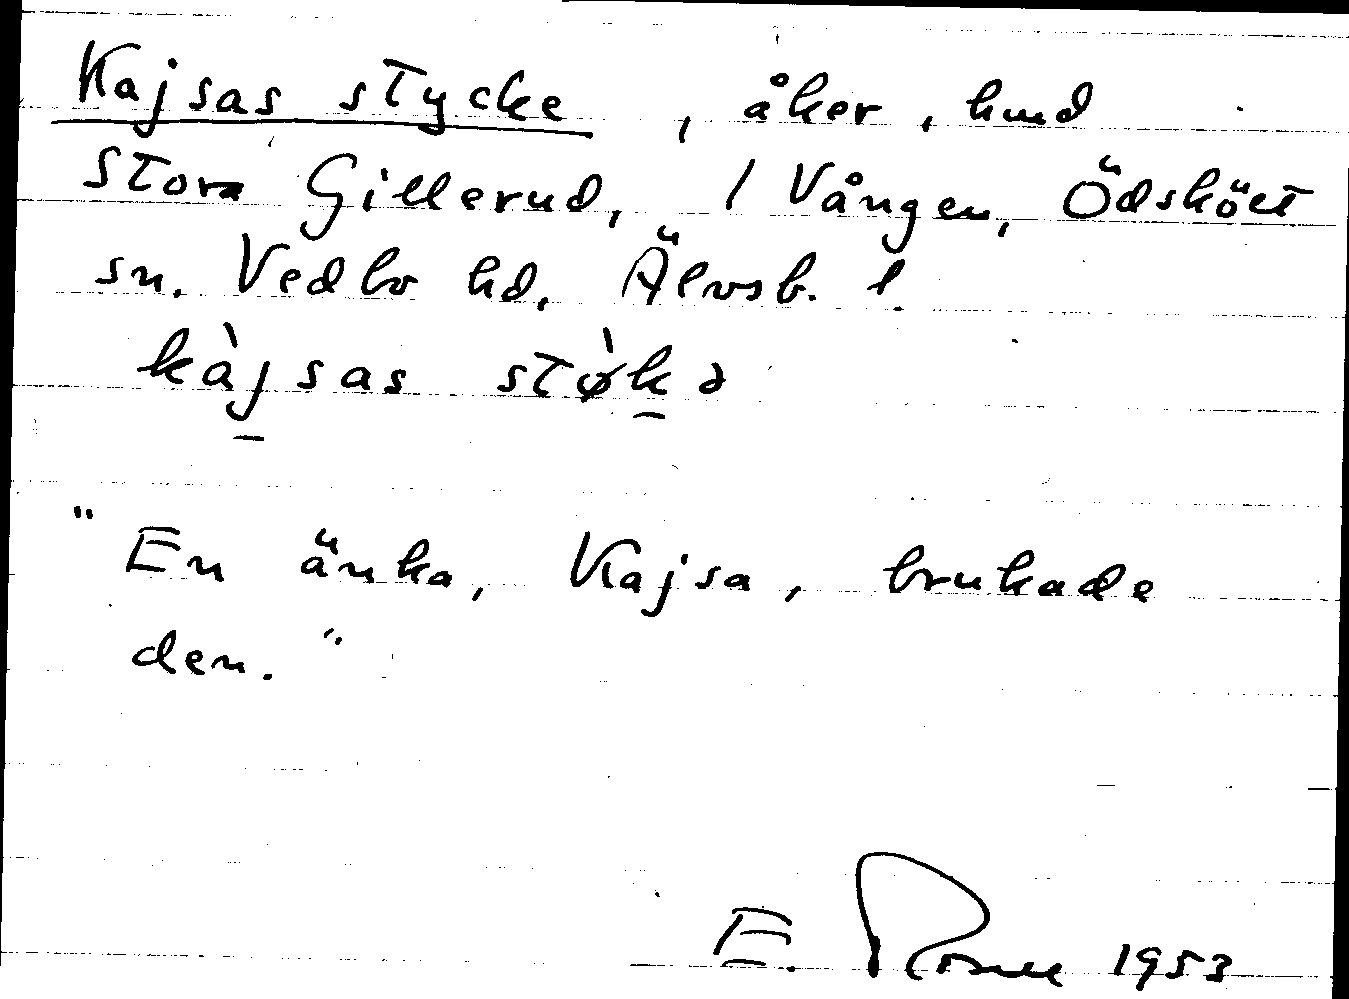 Kajsas stycke, åker, hmd
Stora Gillerud, 1 Vången, Ödskölt
sn. Vedbo hd. Älvsb. l.
kàjsas stø̀kə
"En änka, Kajsa, brukade
den."
E. 1953